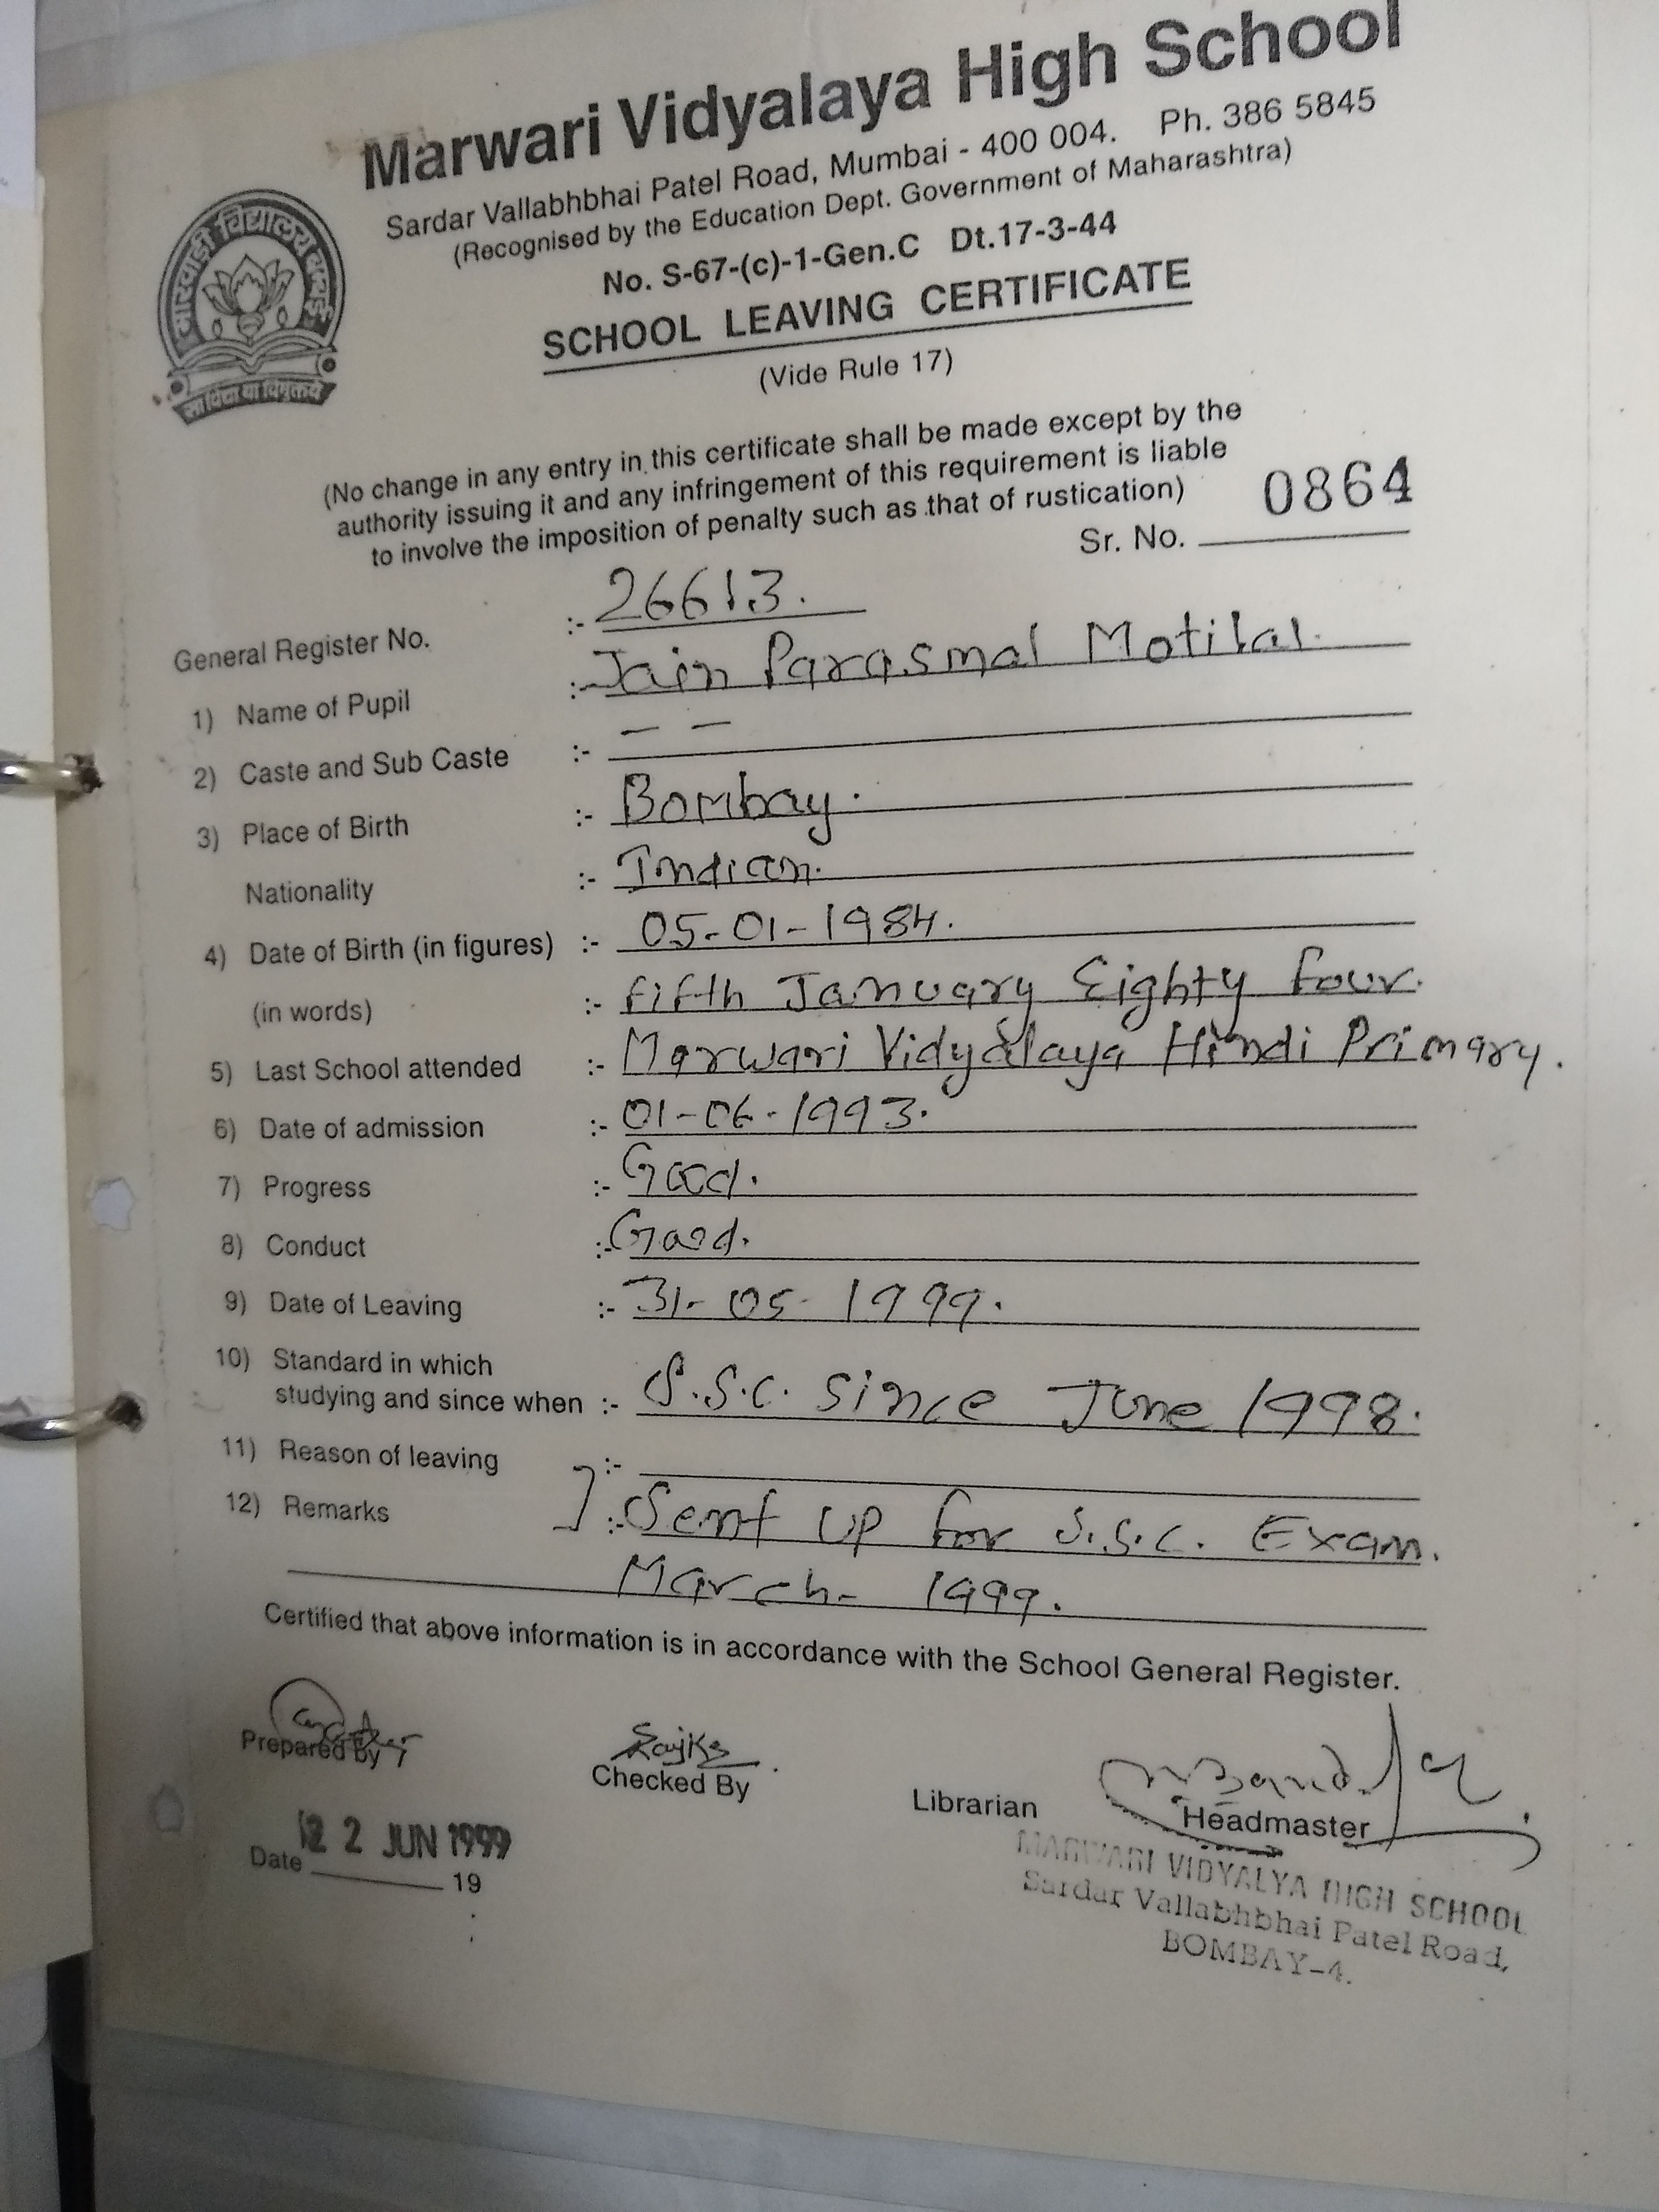 Marwari Vidyalaya High School
Sardar Vallabhbhai Patel Road, Mumbai - 400 004. Ph. 386 5845
(Recognised by the Education Dept. Government of Maharashtra)
No. S-67-(c)-1-Gen.C Dt.17-3-44
मारवाड़ी विद्यालय बम्बई
सा विद्या या विमुक्तये
SCHOOL LEAVING CERTIFICATE
(Vide Rule 17)
(No change in any entry in this certificate shall be made except by the
authority issuing it and any infringement of this requirement is liable
to involve the imposition of penalty such as that of rustication)
Sr. No. 0864
General Register No. :- 26613.
1) Name of Pupil :- Jain Parasmal Motilal.
2) Caste and Sub Caste :- — —
3) Place of Birth :- Bombay.
Nationality :- Indian.
4) Date of Birth (in figures) :- 05-01-1984.
(in words) :- fifth January Eighty four.
5) Last School attended :- Marwari Vidyalaya Hindi Primary.
6) Date of admission :- 01-06-1993.
7) Progress :- Good.
8) Conduct :- Good.
9) Date of Leaving :- 31-05-1999.
10) Standard in which
studying and since when :- S.S.C. since June 1998.
11) Reason of leaving :-
12) Remarks ] :- Sent up for S.S.C. Exam.
March- 1999.
Certified that above information is in accordance with the School General Register.
Prepared By
Checked By
Librarian
Headmaster
22 JUN 1999
Date 19
MARWARI VIDYALYA HIGH SCHOOL
Sardar Vallabhbhai Patel Road,
BOMBAY-4.